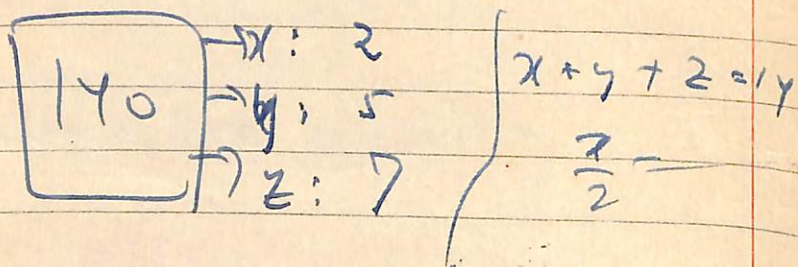 140
x: 2
y: 5
z: 7
x + y + z = 14
x/2 =